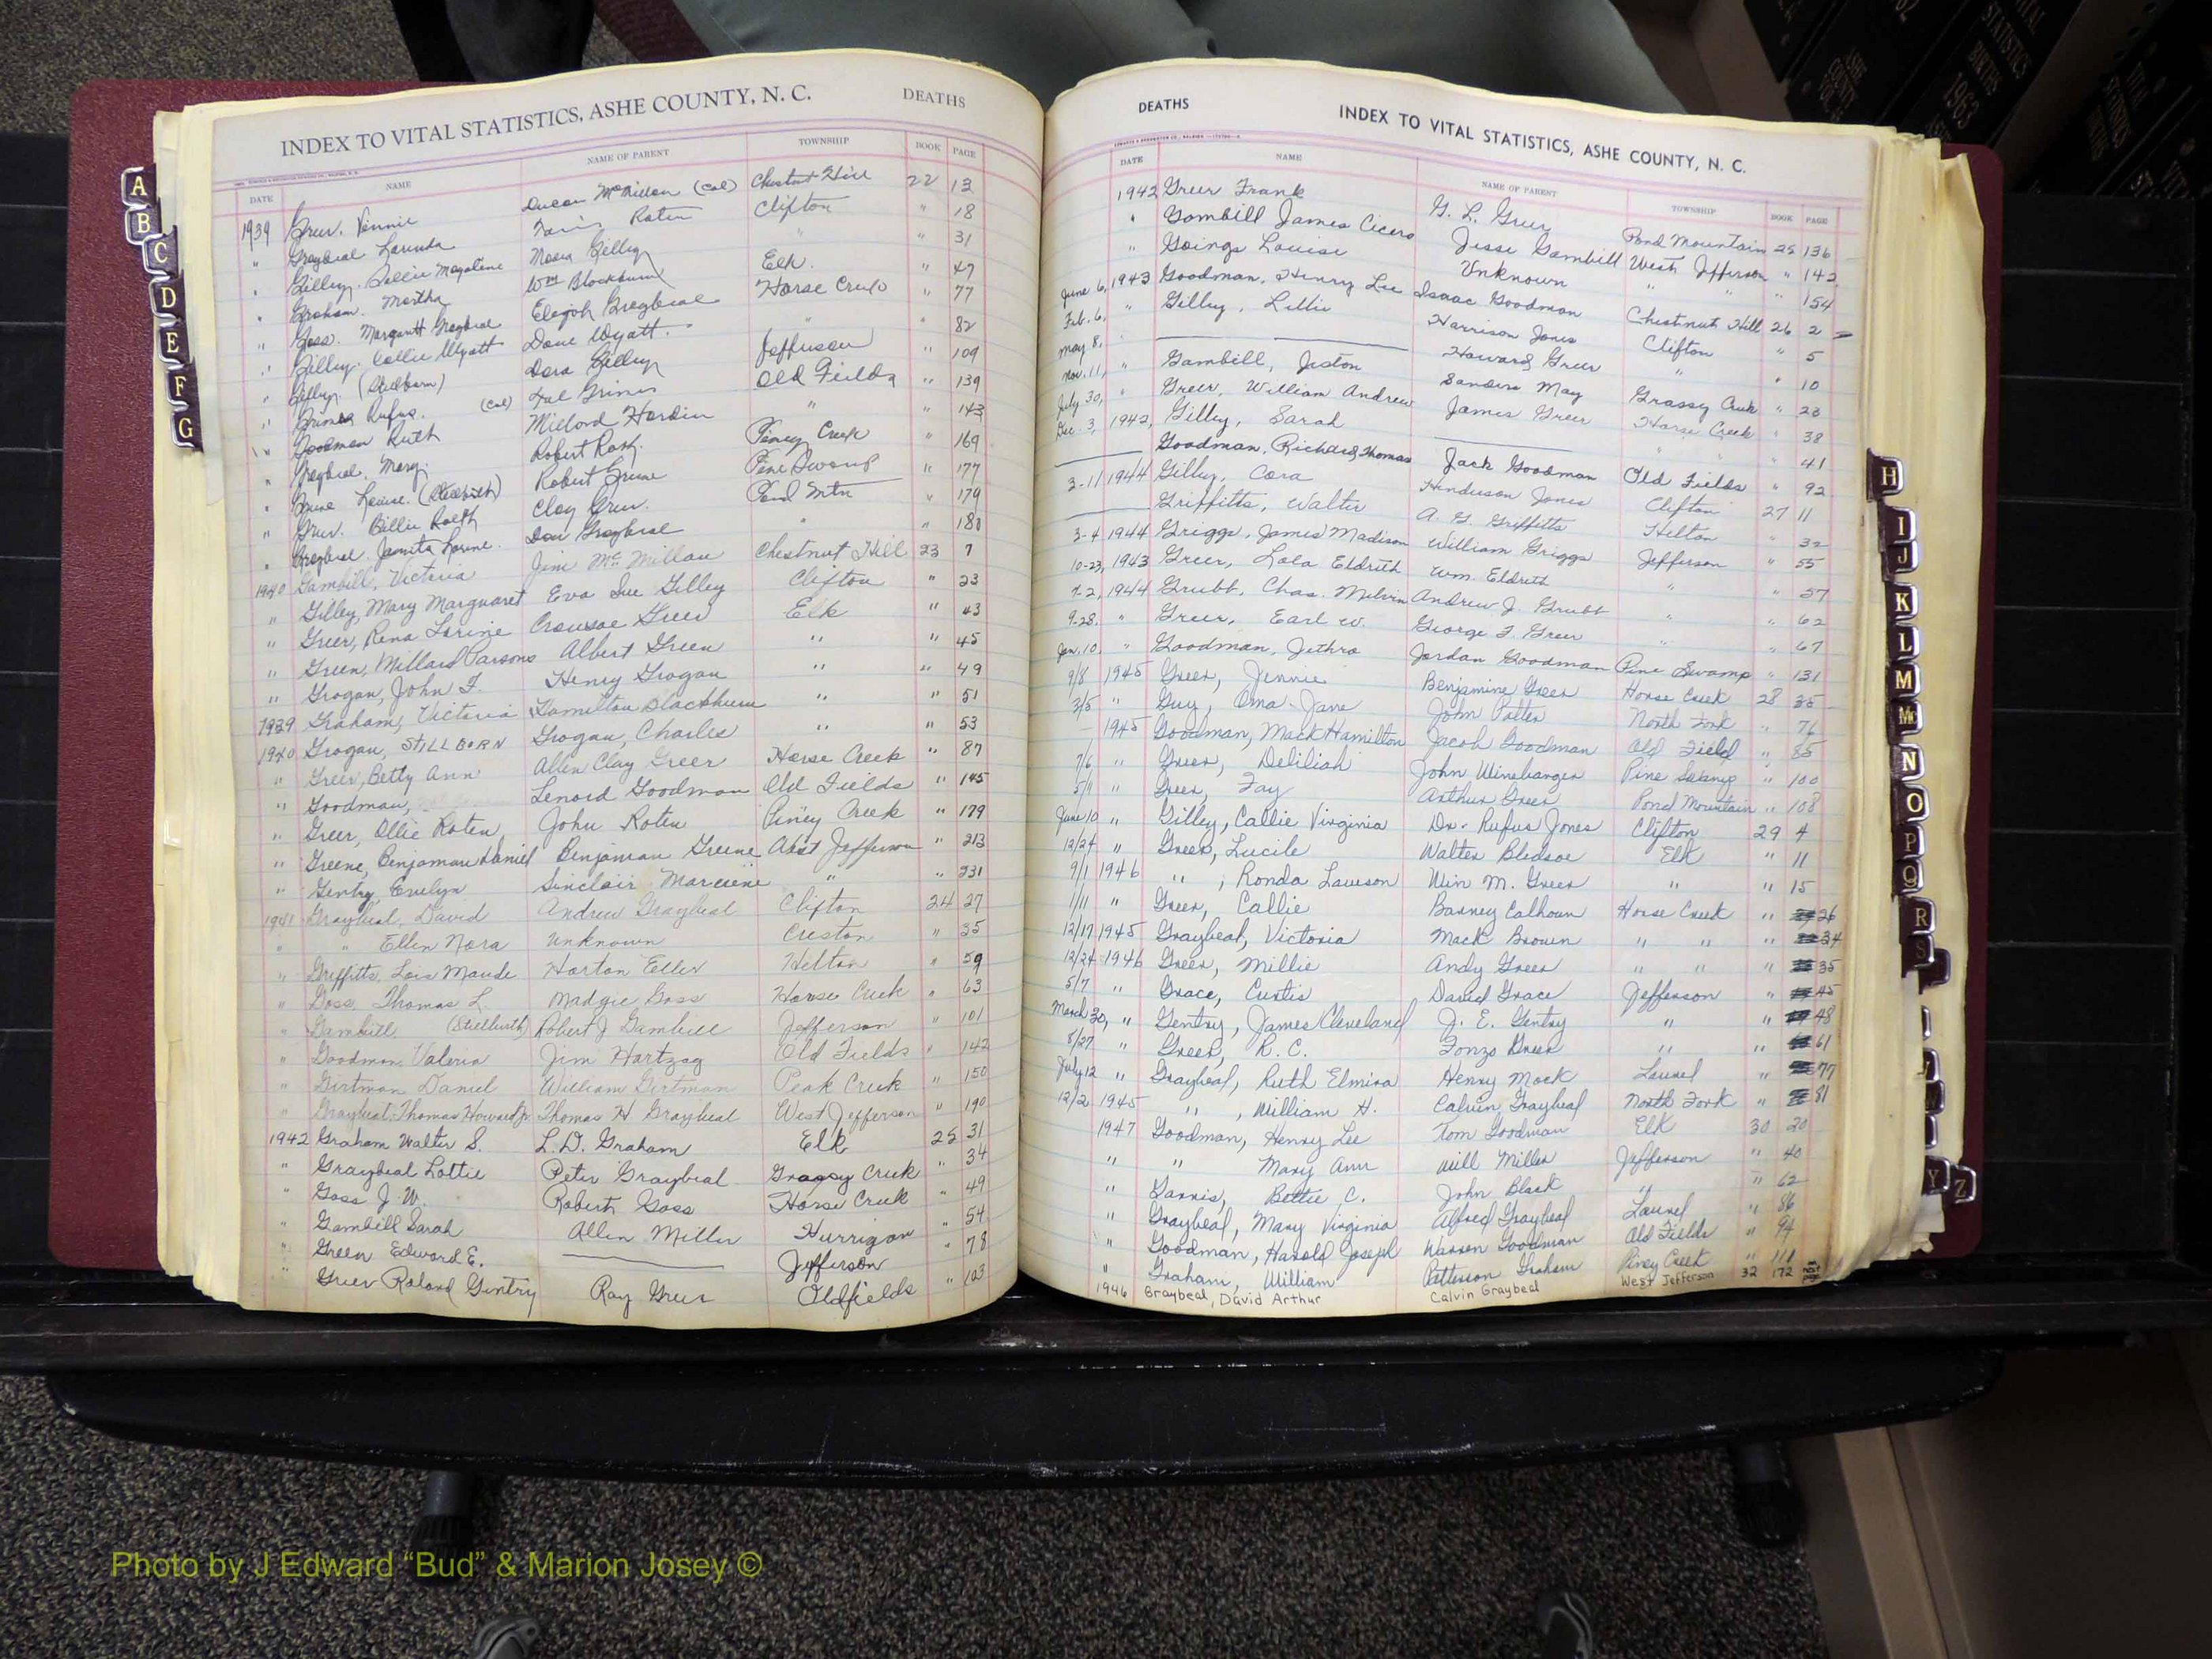 INDEX TO VITAL STATISTICS, ASHE COUNTY, N. C. DEATHS
DATE NAME NAME OF PARENT TOWNSHIP BOOK PAGE
1939 Greer. Vennie Ducan McMillan (Col) Chestnut Hill 22 13
" Graybeal Laruda Roten Clifton " 18
" Gilley. Dollie Magalene Gilley " " 31
" Graham. Martha Wm Blackburn Elk. " 47
" Goss. Margarett Graybeal Elijah Graybeal Horse Creek " 77
" Gilley. Callie Wyatt Dave Wyatt. " " 82
" Gilley. (Stillborn) Dora Gilley Jefferson " 109
" Grimes Rufus. (Col) Grimes Old Fields " 139
" Goodman Ruth Millord Hardin " " 143
" Graybeal. Mary. Robert Rash. Piney Creek " 169
" Louise. (Stillbirth) Robert Greene Pine Swamp " 177
" Greer. Billie Clay Greer. Pond Mtn " 179
" Graybeal. Juanita Lorene. Don Graybeal " " 180
1940 Gambill, Victoria Jim McMillan Chestnut Hill 23 7
" Gilley, Mary Marguaret Eva Sue Gilley Clifton " 23
" Greer, Rena Lorine Crousoe Greer Elk " 43
" Green, Millard Parsons Albert Green " " 45
" Grogan, John F. Henry Grogan " " 49
1939 Graham, Victoria Hamilton Blackburn " " 51
1940 Grogan, STILLBORN Grogan, Charles " " 53
" Greer, Betty Ann Allen Clay Greer Horse Creek " 87
" Goodman, Lenord Goodman Old Fields " 145
" Greer, Ollie Roten John Roten Piney Creek " 179
" Greene, Benjaman Daniel Benjaman Greene West Jefferson " 213
" Gentry, Evelyn Sinclair " " 231
1941 Graybeal, David Andrew Graybeal Clifton 24 27
" " Ellen Nora Unknown Creston " 35
" Griffitts, Lois Maude Horton Eller Helton " 59
" Goss, Thomas L. Madgie Goss Horse Creek " 63
" Gambill (Stillbirth) Robert J Gambill Jefferson " 101
" Goodman, Valeria Jim Hartzog Old Fields " 142
" Girtman Daniel William Girtman Peak Creek " 150
" Graybeal, Thomas Howard Jr. Thomas H Graybeal West Jefferson " 190
1942 Graham Walter S. L. D. Graham Elk 25 31
" Graybeal Lottie Peter Graybeal Grassy Creek " 34
" Goss J. W. Robert Goss Horse Creek " 49
" Gambill Sarah Allen Miller Hurrigan " 54
" Green Edward E. Jefferson " 78
" Greer Roland Gentry Ray Greer Oldfields " 103
DEATHS INDEX TO VITAL STATISTICS, ASHE COUNTY, N. C.
DATE NAME NAME OF PARENT TOWNSHIP BOOK PAGE
1942 Greer Frank G. L. Greer Pond Mountain 25 136
" Gambill James Cicero Jesse Gambill West Jefferson " 142
" Goings Louise Unknown " " " 154
June 6, 1943 Goodman, Henry Lee Isaac Goodman Chestnut Hill 26 2
Feb. 6, " Gilley, Lillie Harrison Jones Clifton " 5
May 8, " Howard Greer " " 10
Nov. 11, " Gambill, Jeston Sanders May Grassy Creek " 23
July 30, " Greer, William Andrew James Greer Horse Creek " 38
Dec. 3, 1942, Gilley, Sarah " " " 41
Goodman, Richard Thomas Jack Goodman Old Fields " 92
3-11 1944 Gilley, Cora Henderson Jones Clifton 27 11
Griffitts, Walter A. G. Griffitts Helton " 32
3-4 1944 Griggs, James Madison William Griggs Jefferson " 55
10-23, 1943 Greer, Lola Eldreth Wm. Eldreth " " 57
7-2, 1944 Grubb, Chas. Melvin Andrew J. Grubb " " 62
9-28, " Greer, Earl W. George F. Greer " " 67
Jan. 10 " Goodman, Jethro Jordan Goodman Pine Swamp " 131
9/8 1945 Greer, Jennie Benjamine Greer Horse Creek 28 35
3/5 " Guy, Oma Jane John Potter North Fork " 76
1945 Goodman, Mack Hamilton Jacob Goodman Old Field " 85
7/6 " Greer, Deliliah John Winebarger Pine Swamp " 100
5/1 " Greer, Fay Arthur Greer Pond Mountain " 108
June 10 " Gilley, Callie Virginia Dr. Rufus Jones Clifton 29 4
12/24 " Greer, Lucile Walter Bledsoe Elk " 11
9/1 1946 " , Ronda Laweson Win M. Greer " " 15
1/11 " Greer, Callie Barney Calhoun Horse Creek " 26
12/17 1945 Graybeal, Victoria Mack Brown " " " 34
12/24 1946 Greer, Millie Andy Greer " " " 35
5/7 " Grace, Curtis David Grace Jefferson " 45
March 30, " Gentry, James Cleveland J. E. Gentry " " 48
8/27 " Greer, R. C. Fonzo Greer " " 61
July 12 " Graybeal, Ruth Elmira Henry Mock Laurel " 77
12/2 1945 " , William H. Calvin Graybeal North Fork " 81
1947 Goodman, Henry Lee Tom Goodman Elk 30 20
" " Mary Ann Will Miller Jefferson " 40
" Garris, Bettie C. John Black " " 62
" Graybeal, Mary Virginia Alfred Graybeal Laurel " 86
" Goodman, Harold Joseph Warren Goodman Old Fields " 94
" Graham, William Patterson Graham Piney Creek " 111
1946 Graybeal, David Arthur Calvin Graybeal West Jefferson 32 172
A
B
C
D
E
F
G
H
I
J
K
L
M
Mc
N
O
P
Q
R
S
Y Z
VITAL STATISTICS BIRTHS 1963
ASHE COUNTY
Photo by J Edward “Bud” & Marion Josey ©